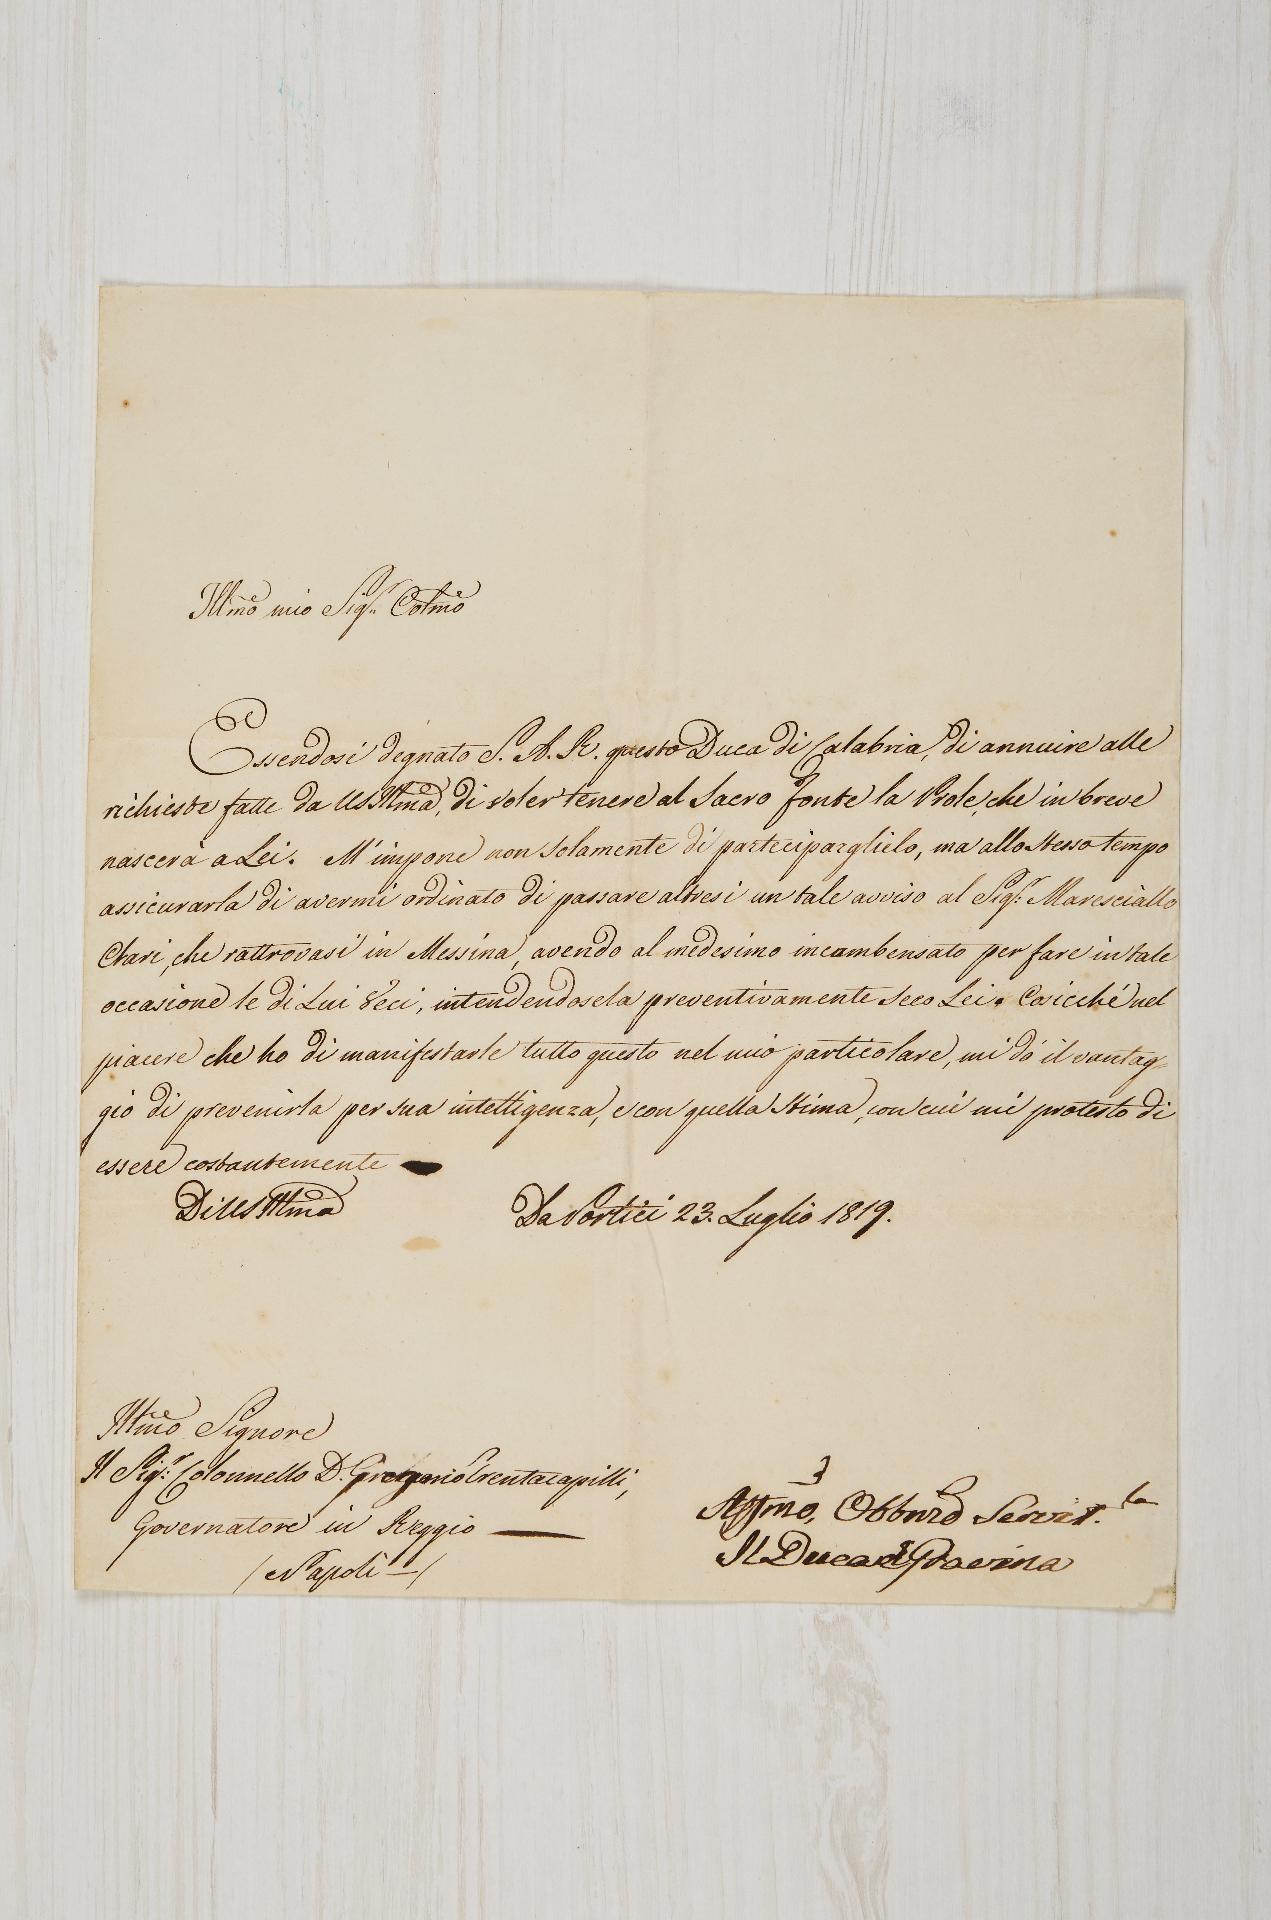 Illmo mio Sigr. Colmo
Essendosi degnato S. A. R. questo Duca di Calabria, di annuire alle
richieste fatte da US Illma, di voler tenere al Sacro fonte la Prole, che in breve
nascerà a Lei. M'impone non solamente di parteciparglielo, ma allo stesso tempo
assicurarla di avermi ordinato di passare altresi un tale avviso al Sigr. Maresciallo
Clari, che rattrovasi in Messina, avendo al medesimo incambensato per fare in tale
occasione le di Lui Veci, intendendosela preventivamente seco Lei. Cosicchè nel
piacere che ho di manifestarle tutto questo nel mio particolare, mi dó il vantag-
gio di prevenirla per sua intelligenza, e con quella stima, con cui mi protesto di
essere costantemente
Di US Illma
Da Portici 23. Luglio 1819.
Illmo Signore
Il Sigr. Colonnello D. Gregorio Trentacapilli,
Governatore in Reggio
/ Napoli /
Affmo, Obbmo Servit.
Il Duca di Gravina